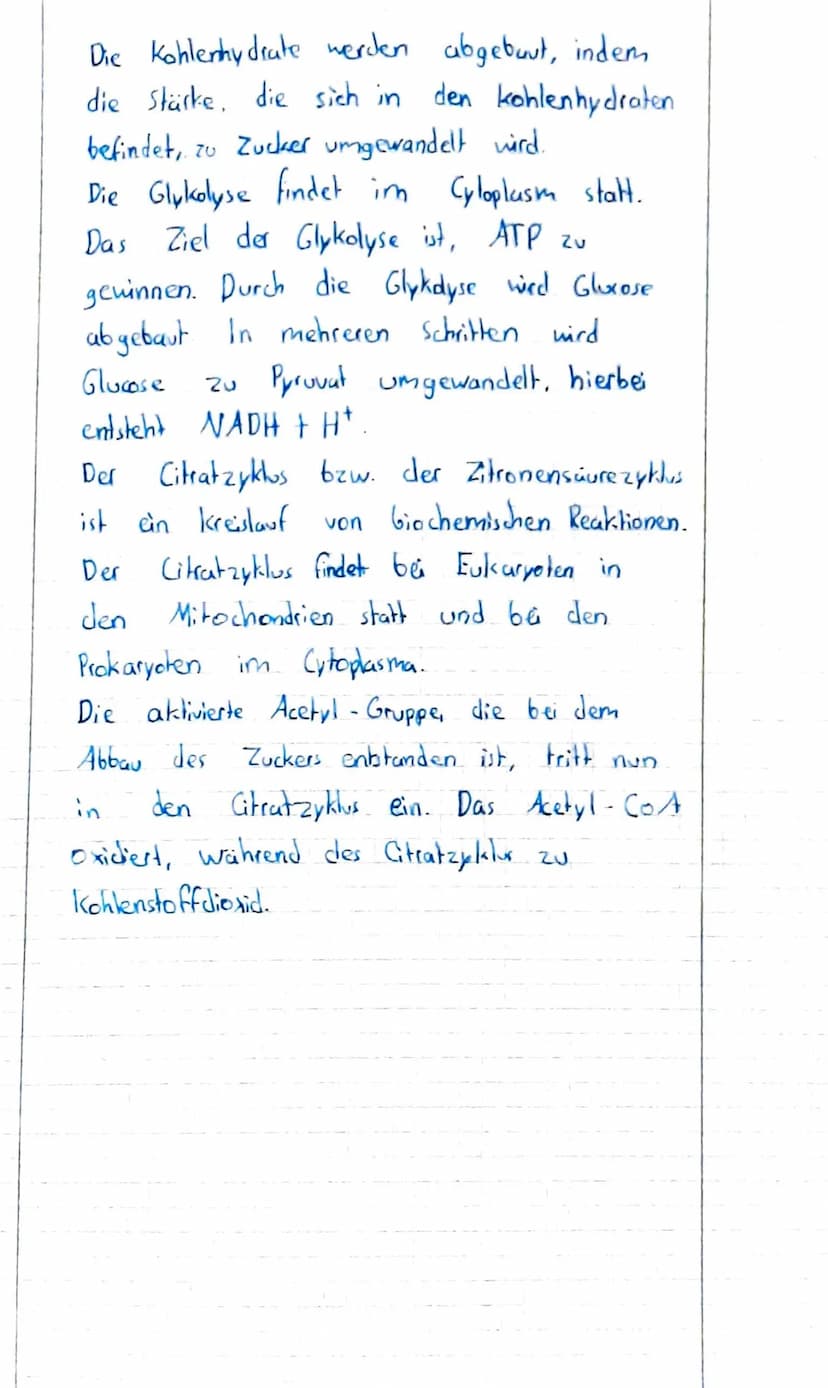 Die Kohlenhydrate werden abgebaut, indem
die Stärke, die sich in den Kohlenhydraten
befindet, zu Zucker umgewandelt wird.
Die Glykolyse findet im Cytoplasm statt.
Das Ziel der Glykolyse ist, ATP zu
gewinnen. Durch die Glykolyse wird Glucose
abgebaut In mehreren Schritten wird
Glucose zu Pyruvat umgewandelt, hierbei
entsteht NADH + H⁺.
Der Citratzyklus bzw. der Zitronensäurezyklus
ist ein Kreislauf von biochemischen Reaktionen.
Der Citratzyklus findet bei Eukaryoten in
den Mitochondrien statt und bei den
Prokaryoten im Cytoplasma.
Die aktivierte Acetyl-Gruppe, die bei dem
Abbau des Zuckers enstanden ist, tritt nun
in den Citratzyklus ein. Das Acetyl-CoA
oxidiert, während des Citratzyklus zu
Kohlenstoffdioxid.